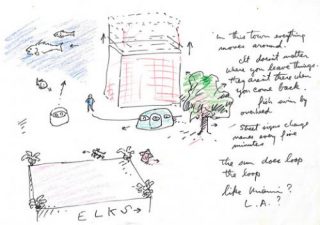 in this town everything
moves around.
It doesn't matter
where you leave things.
they aren't there when
you come back.
fish swim by
overhead.
Street signs change
names every five
minutes
The sun does loop
the loop
like Miami?
L.A.?
ELKS